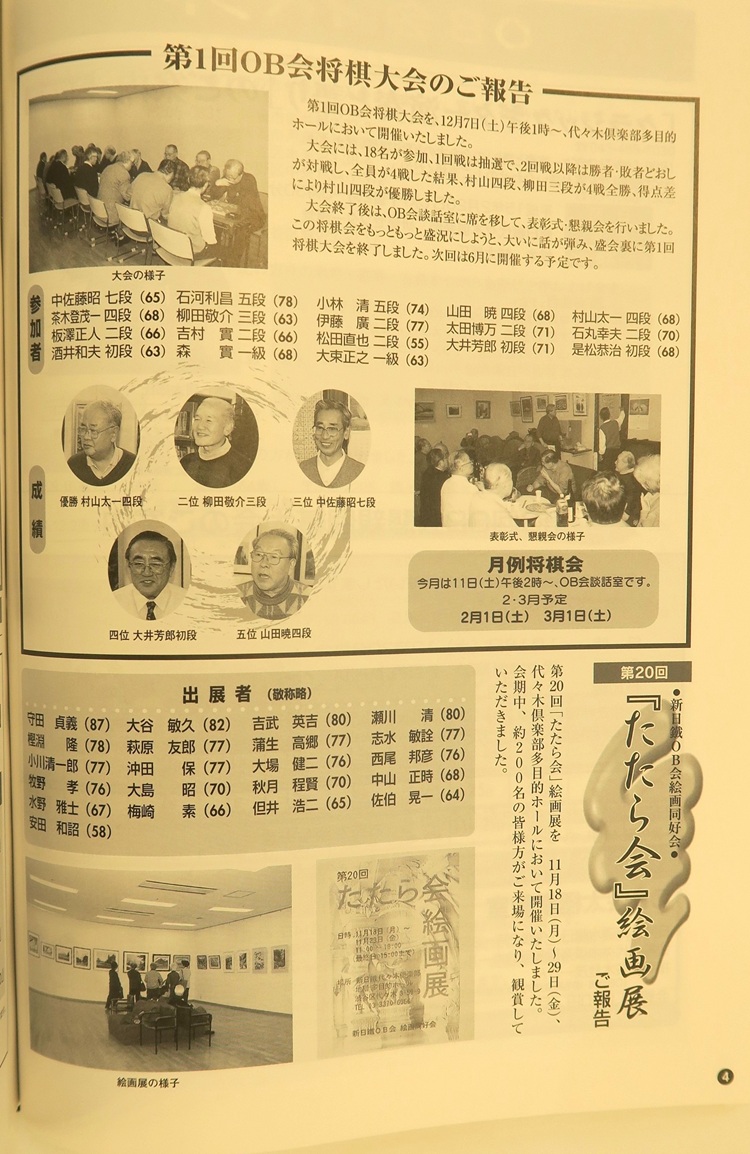 第1回OB会将棋大会のご報告
第1回OB会将棋大会を、12月7日(土)午後1時～、代々木倶楽部多目的
ホールにおいて開催いたしました。
大会には、18名が参加、1回戦は抽選で、2回戦以降は勝者・敗者どおし
が対戦し、全員が4戦した結果、村山四段、柳田三段が4戦全勝、得点差
により村山四段が優勝しました。
大会終了後は、OB会談話室に席を移して、表彰式・懇親会を行いました。
この将棋会をもっともっと盛況にしようと、大いに話が弾み、盛会裏に第1回
将棋大会を終了しました。次回は6月に開催する予定です。
大会の様子
参加者
中佐藤昭 七段（65） 石河利昌 五段（78） 小林　清 五段（74） 山田　暁 四段（68） 村山太一 四段（68）
茶木登茂一 四段（68） 柳田敬介 三段（63） 伊藤　廣 二段（77） 太田博万 二段（71） 石丸幸夫 二段（70）
板澤正人 二段（66） 吉村　實 二段（66） 松田直也 二段（55） 大井芳郎 初段（71） 是松恭治 初段（68）
酒井和夫 初段（63） 森　實 一級（68） 大束正之 一級（63）
成績
優勝 村山太一四段
二位 柳田敬介三段
三位 中佐藤昭七段
四位 大井芳郎初段
五位 山田暁四段
表彰式、懇親会の様子
月例将棋会
今月は11日(土)午後2時～、OB会談話室です。
2・3月予定
2月1日(土)　3月1日(土)
第20回
●新日鐵OB会絵画同好会●
『たたら会』絵画展
ご報告
第20回「たたら会」絵画展を　11月18日(月)～29日(金)、
代々木倶楽部多目的ホールにおいて開催いたしました。
会期中、約200名の皆様方がご来場になり、観賞して
いただきました。
出展者（敬称略）
守田　貞義（87） 大谷　敏久（82） 吉武　英吉（80） 瀬川　清（80）
樫淵　隆（78） 萩原　友郎（77） 蒲生　高郷（77） 志水　敏詮（77）
小川清一郎（77） 沖田　保（77） 大場　健二（76） 西尾　邦彦（76）
牧野　孝（76） 大島　昭（70） 秋月　程賢（70） 中山　正時（68）
水野　雅士（67） 梅崎　素（66） 但井　浩二（65） 佐伯　晃一（64）
安田　和詔（58）
第20回
たたら会絵画展
日時 11月18日(月)～
11月29日(金)
新日鐵OB会 絵画同好会
絵画展の様子
4